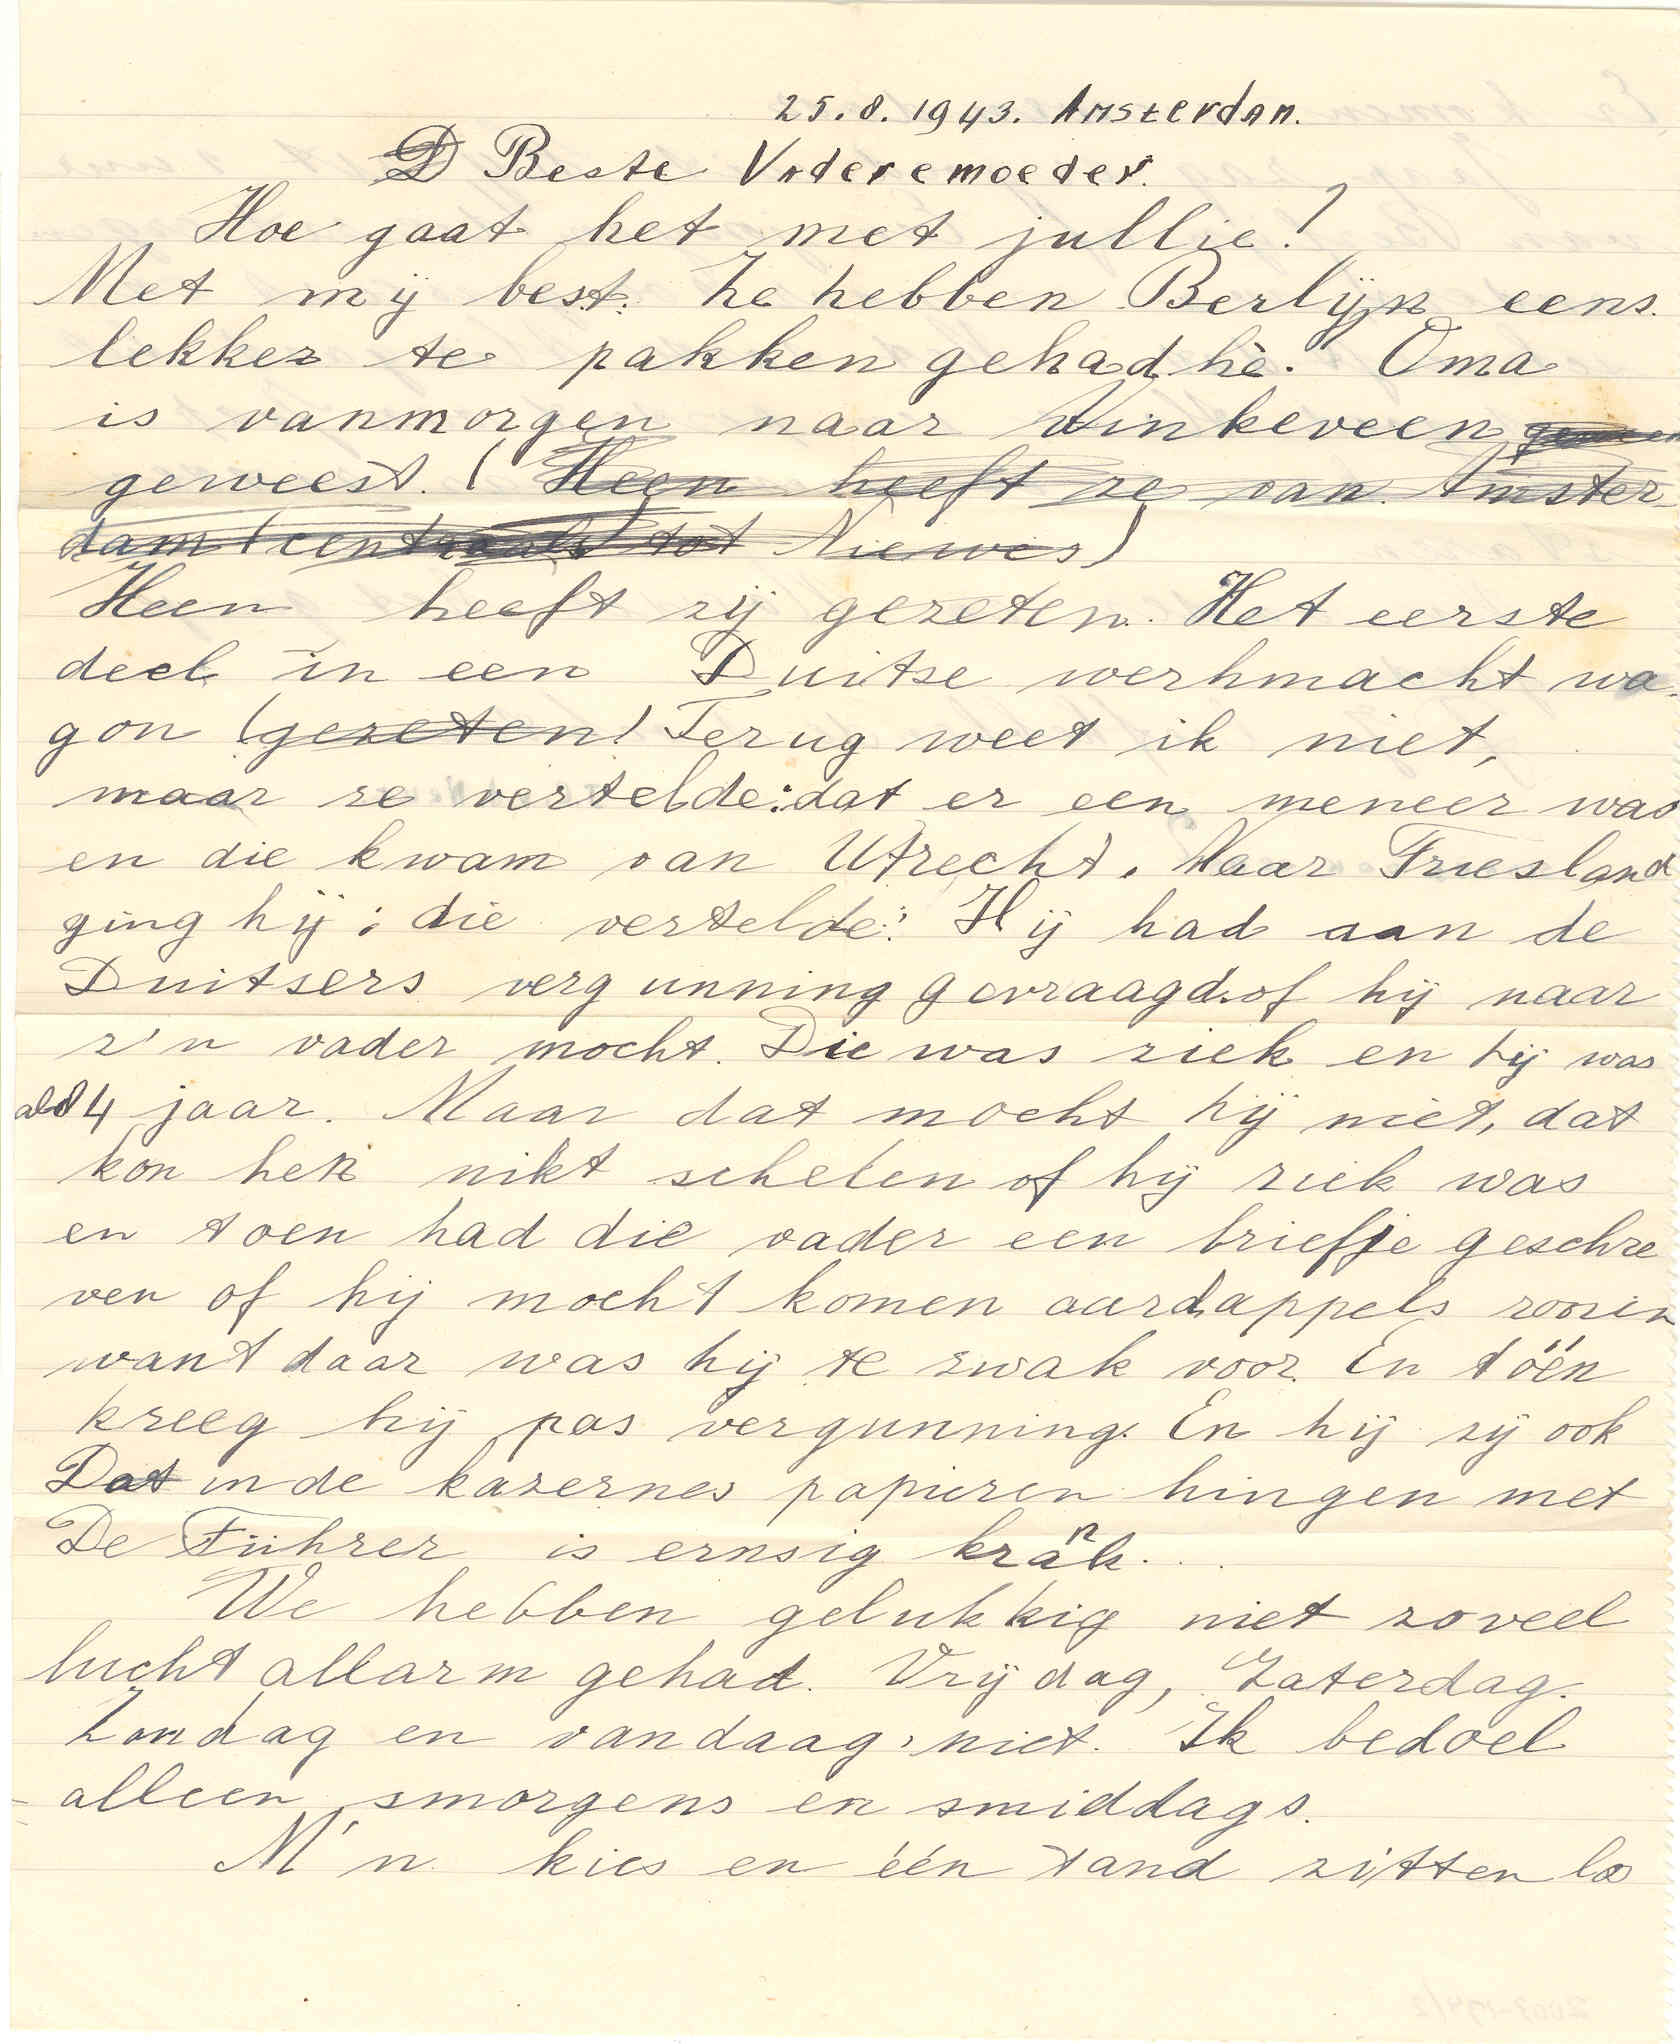 25.8.1943. Amsterdam.
D Beste Vader e moeder.
Hoe gaat het met jullie?
Met mij best. Ze hebben Berlijn eens
lekker te pakken gehad hè. Oma
is vanmorgen naar Vinkeveen
geweest. (Heen heeft ze van Amster-
dam (centraal) tot Niewes)
Heen heeft zij gezeten. Het eerste
deel in een Duitse werhmacht wa-
gon (gezeten) Terug weet ik niet,
maar ze vertelde: dat er een meneer was
en die kwam van Utrecht. Naar Friesland
ging hij; die vertelde: Hij had aan de
Duitsers vergunning gevraagd of hij naar
z'n vader mocht. Die was ziek en hij was
al 84 jaar. Maar dat mocht hij niet, dat
kon hen nikt schelen of hij ziek was
en toen had die vader een briefje geschre
ven of hij mocht komen aardappels rooien
want daar was hij te zwak voor. En tóén
kreeg hij pas vergunning. En hij zij ook
Dat in de kazernes papieren hingen met
De Führer is ernsig kränk...
We hebben gelukkig niet zoveel
lucht allarm gehad. Vrijdag, Zaterdag.
Zondag en vandaag, niet. Ik bedoel
alleen smorgens en smiddags.
M'n kies en één tand zitten los